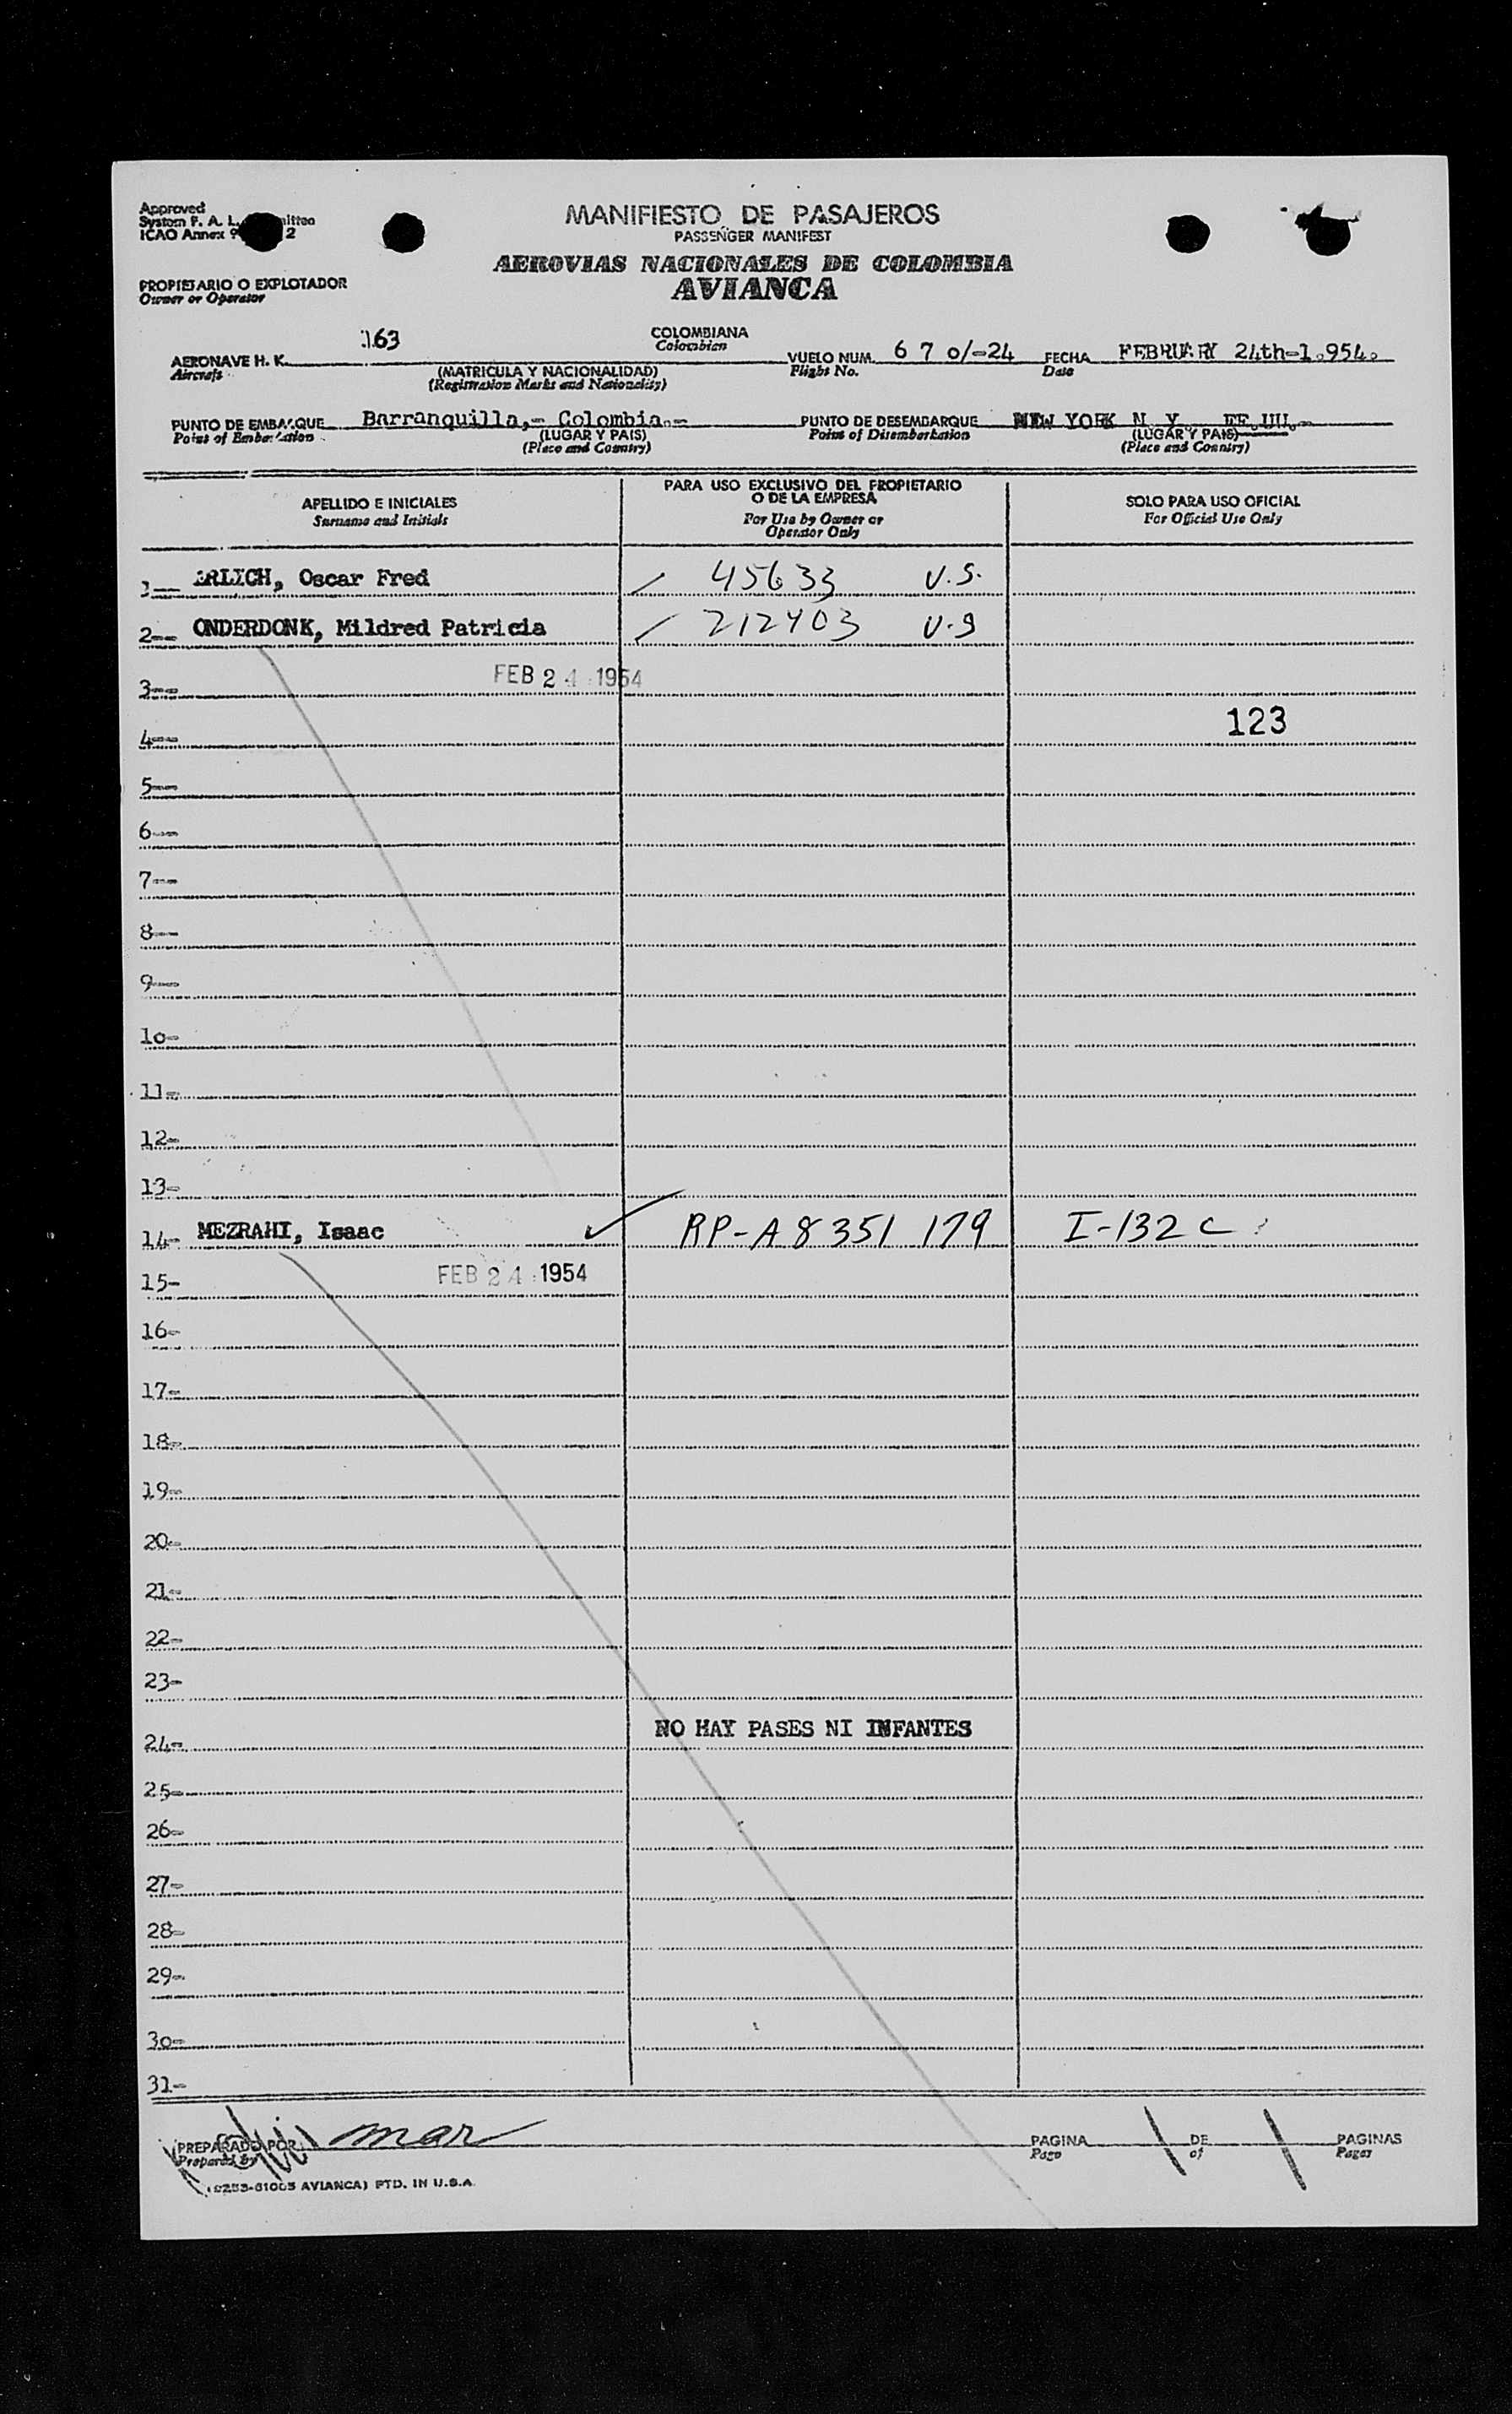 Approved
System F. A. L.
ICAO Annex 9 2
MANIFIESTO DE PASAJEROS
PASSENGER MANIFEST
AEROVIAS NACIONALES DE COLOMBIA
AVIANCA
PROPIETARIO O EXPLOTADOR
Owner or Operator
AERONAVE H. K. 163 COLOMBIANA VUELO NUM. 6 7 0/-24 FECHA FEBRUARY 24th-1.954.
Aircraft Colombian Flight No. Date
(MATRICULA Y NACIONALIDAD)
(Registration Marks and Nationality)
PUNTO DE EMBARQUE Barranquilla,- Colombia.- PUNTO DE DESEMBARQUE NEW YORK N Y EE.UU.-
Point of Embarkation (LUGAR Y PAIS) Point of Disembarkation (LUGAR Y PAIS)
(Place and Country) (Place and Country)
APELLIDO E INICIALES
Surname and Initials
PARA USO EXCLUSIVO DEL PROPIETARIO
O DE LA EMPRESA
For Use by Owner or
Operator Only
SOLO PARA USO OFICIAL
For Official Use Only
1-- ERLICH, Oscar Fred / 45633 U.S.
2-- ONDERDONK, Mildred Patricia / 212403 U.S
FEB 24 1954
3--
123
4--
5--
6--
7--
8--
9--
10-
11-
12-
13-
14- MEZRAHI, Isaac ✓ RP-A8351 179 I-132 C
FEB 24 1954
15-
16-
17-
18-
19-
20-
21-
22-
23-
24- NO HAY PASES NI INFANTES
25-
26-
27-
28-
29-
30-
31-
PREPARADO POR mar PAGINA 1 DE 1 PAGINAS
Prepared by Page of Pages
AVIANCA) PTD. IN U.S.A.